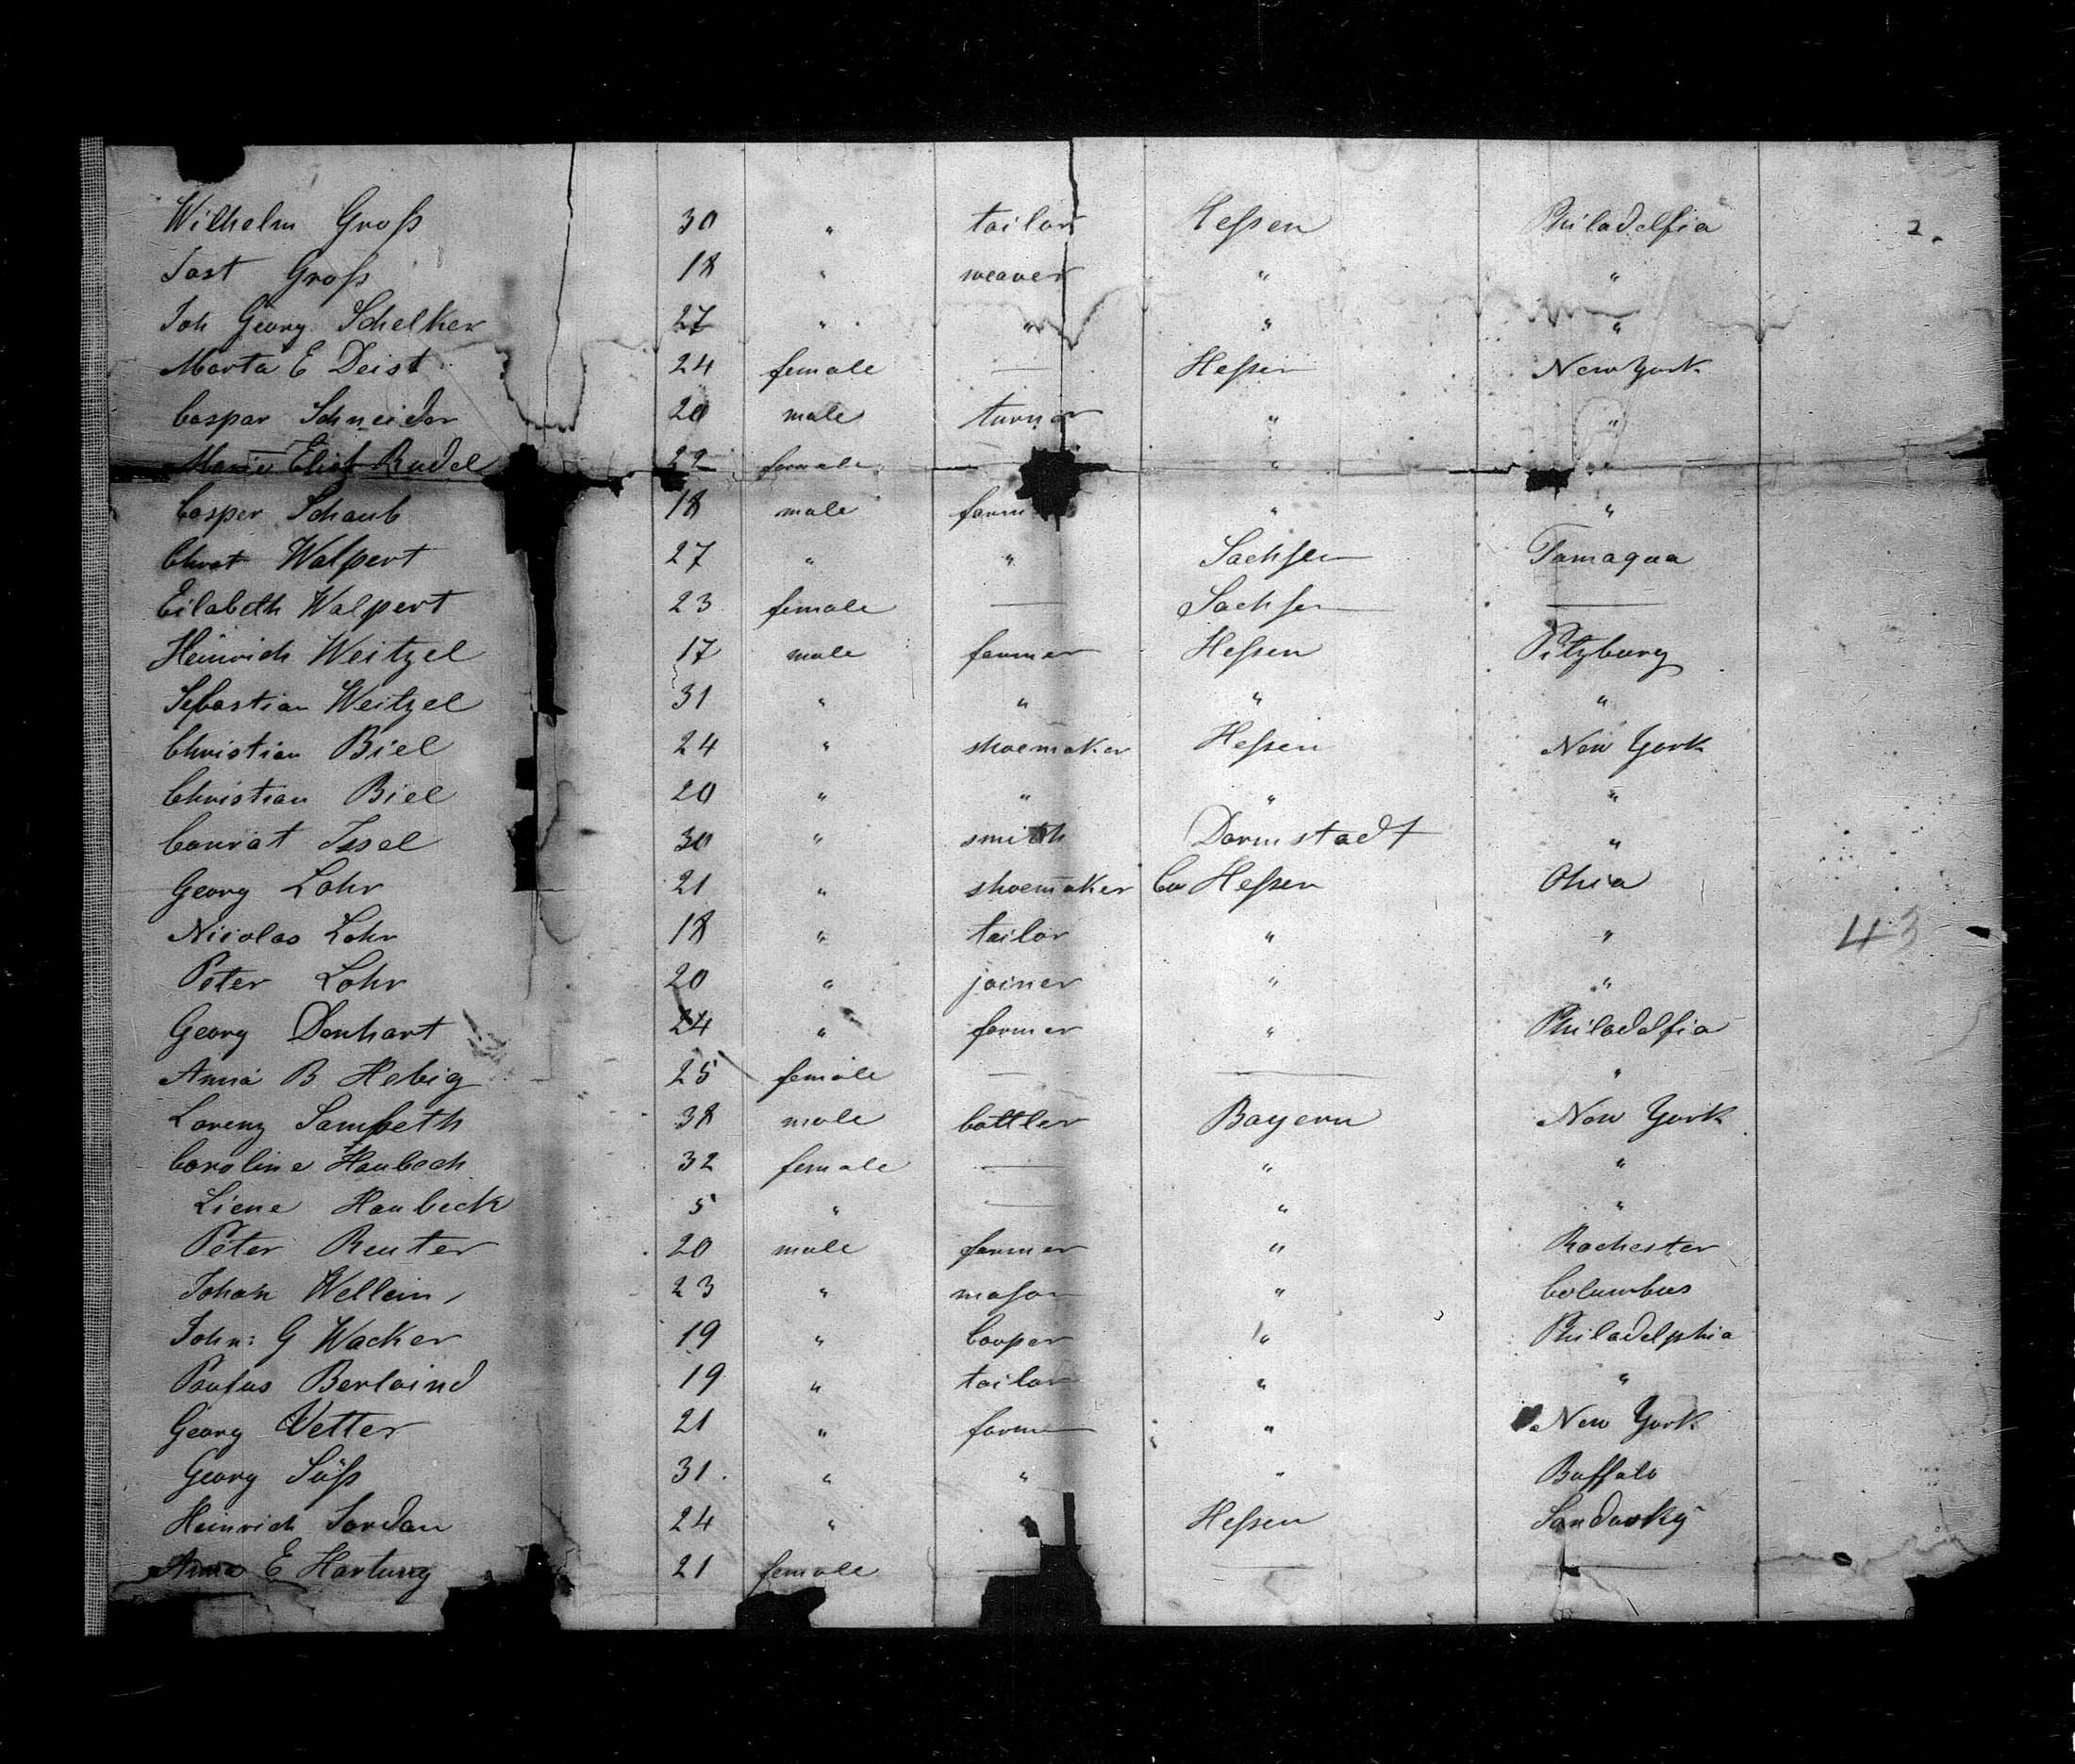 Wilhelm Groß 30 " tailor Heßen Philadelfia 2.
Jost Groß 18 " weaver " "
Joh Georg Schelker 27 " " " "
Marta E Deist 24 female — Heßen New York
Caspar Schneider 20 male turner " "
Marie Elisb Rudel 22 female " "
Casper Schaub 18 male farm " "
Christ Walpert 27 " " Sachsen Tamaqua
Eilabeth Walpert 23 female — Sachsen —
Heinrich Weitzel 17 male farmer Heßen Pitzburg
Sebastian Weitzel 31 " " " "
Christian Biel 24 " shoemaker Heßen New York
Christian Biel 20 " " " "
Conrat Issel 30 " smith Darmstadt "
Georg Lohr 21 " shoemaker Heßen Ohio
Nicolas Lohr 18 " tailor " "
Peter Lohr 20 " joiner " "
Georg Denhart 24 " farmer " Philadelfia
Anna B Hebig 25 female — — "
Lorenz Sambeth 38 male bottler Bayern New York
Caroline Haubech 32 female — " "
Liene Haubeck 5 " — " "
Peter Reuter 20 male farmer " Rochester
Johan Wellein 23 " mason " Columbus
John: G Wacker 19 " Cooper " Philadelphia
Paulus Berlaind 19 " tailor " "
Georg Vetter 21 " farmer " New York
Georg Süß 31 " " " Buffalo
Heinrich Jordan 24 " " Heßen Sandusky
Anna E Hartung 21 female — — —
43